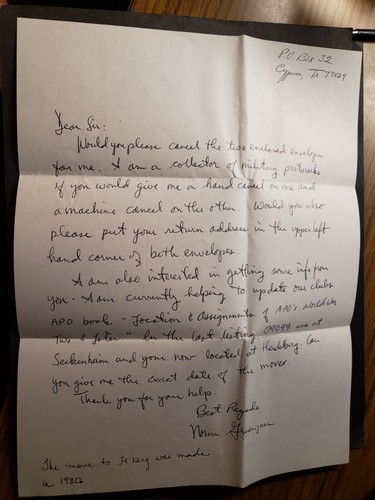 P.O. Box 32
Cypress, Tx 77429
Dear Sir:
Would you please cancel the two enclosed envelopes
for me. I am a collector of military postmarks
if you would give me a hand cancel on one and
a machine cancel on the other. Would you also
please put your return address in the upper left
hand corner of both envelopes
I am also interested in getting some info from
you. I am currently helping to update our clubs
APO book "Location & Assignments of APO's World War
Two & Later" In the last listing 09099 was at
Seckenheim and your now located at Heidelburg. Can
you give me the exact date of the move
Thank you for your help.
Best Regards
Norm
The move to H'berg was made
in 1980